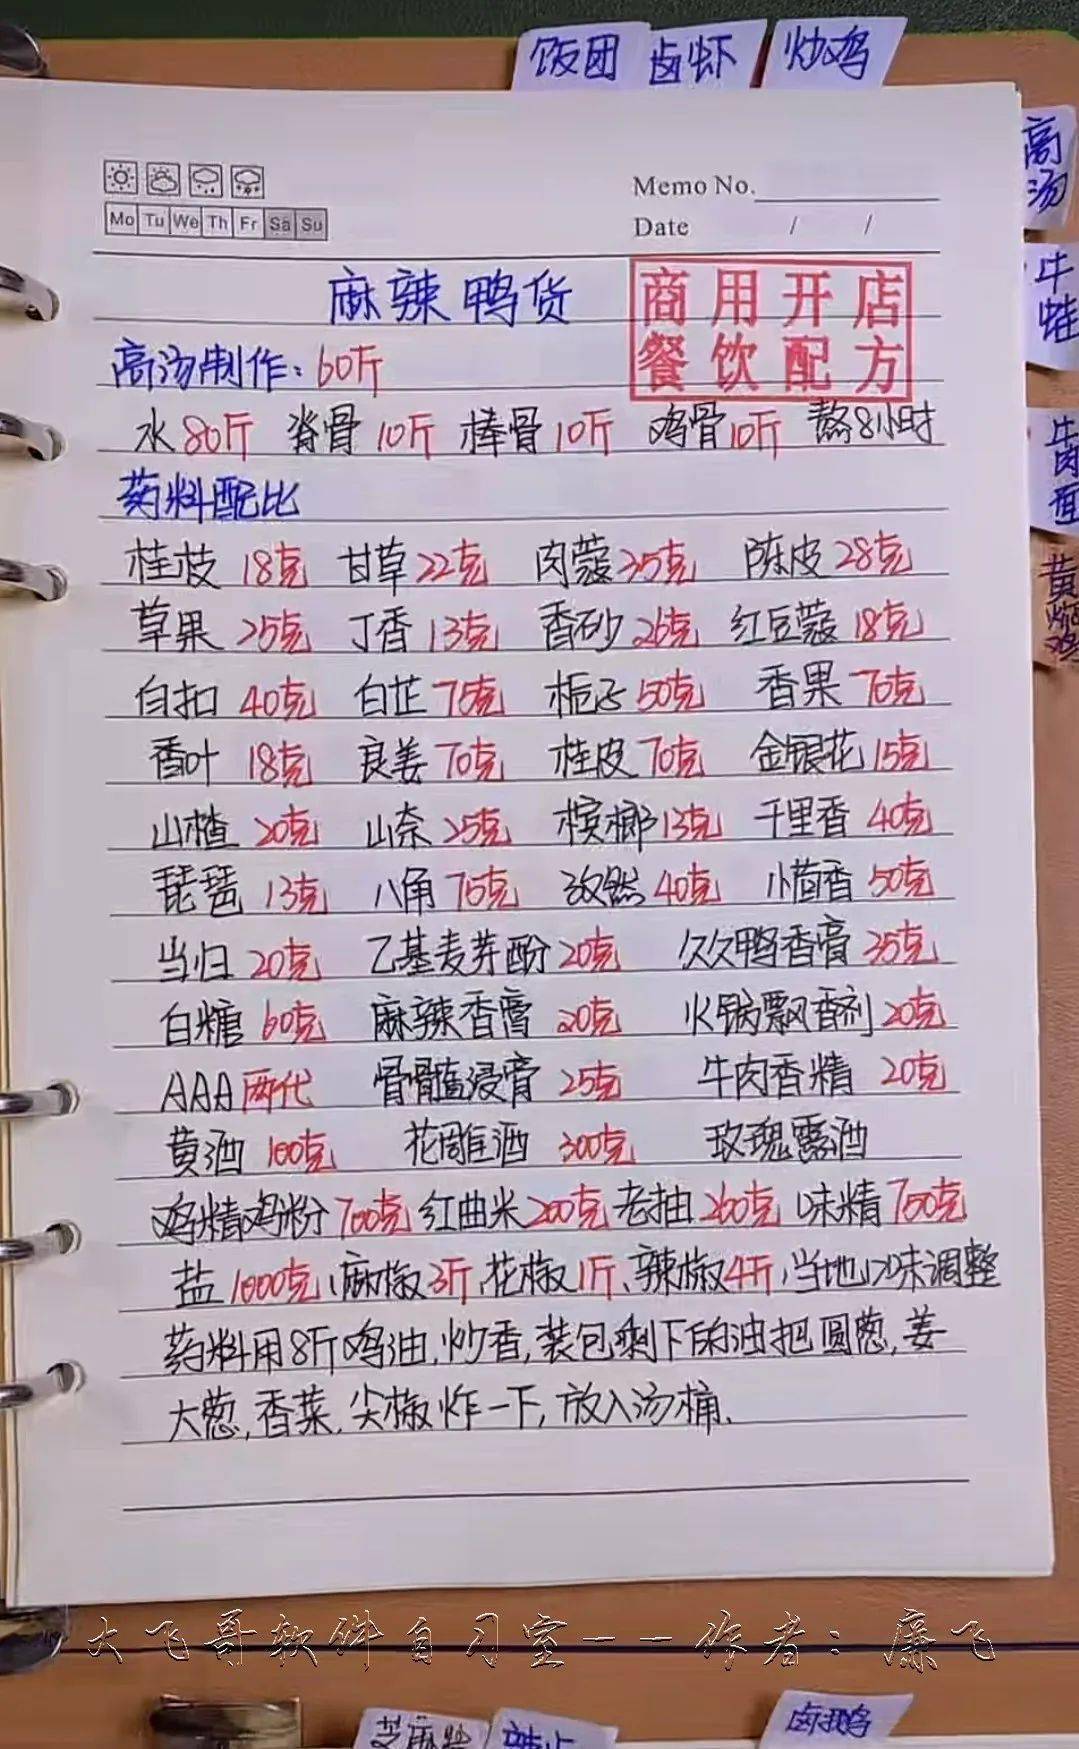 饭团 卤虾 炒鸡
高汤
牛蛙
牛肉面
黄焖鸡
Memo No.
Mo Tu We Th Fr Sa Su
Date / /
麻辣鸭货
商用开店
餐饮配方
高汤制作：60斤
水80斤 脊骨10斤 棒骨10斤 鸡骨10斤 熬8小时
药料配比
桂枝18克 甘草22克 肉蔻35克 陈皮28克
草果25克 丁香13克 香砂26克 红豆蔻18克
白扣40克 白芷75克 栀子50克 香果70克
香叶18克 良姜70克 桂皮70克 金银花15克
山楂20克 山奈25克 槟榔13克 千里香40克
琵琶13克 八角75克 孜然40克 小茴香50克
当归20克 乙基麦芽酚20克 久久鸭香膏35克
白糖60克 麻辣香膏20克 火锅飘香剂20克
AAA两代 骨髓浸膏25克 牛肉香精20克
黄酒100克 花雕酒300克 玫瑰露酒
鸡精鸡粉700克 红曲米200克 老抽260克 味精700克
盐1000克、麻椒3斤、花椒1斤、辣椒4斤，当地口味调整
药料用8斤鸡油，炒香，装包剩下的油把圆葱，姜
大葱，香菜，尖椒炸一下，放入汤桶.
大飞哥软件自习室--作者：廉飞